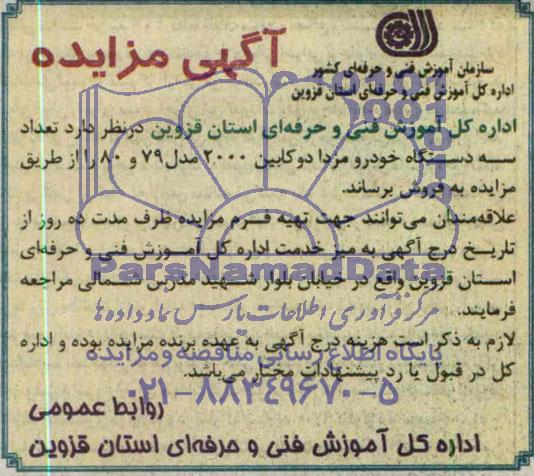 آگهی مزایده
سازمان آموزش فنی و حرفه‌ای کشور
اداره کل آموزش فنی و حرفه‌ای استان قزوین
اداره کل آموزش فنی و حرفه‌ای استان قزوین درنظر دارد تعداد
سه دستگاه خودرو مزدا دوکابین ۲۰۰۰ مدل ۷۹ و ۸۰ را از طریق
مزایده به فروش برساند.
علاقه‌مندان می‌توانند جهت تهیه فرم مزایده ظرف مدت ده روز از
تاریخ درج آگهی به میز خدمت اداره کل آموزش فنی و حرفه‌ای
استان قزوین واقع در خیابان بلوار شهید مدرس شمالی مراجعه
فرمایند.
لازم به ذکر است هزینه درج آگهی به عهده برنده مزایده بوده و اداره
کل در قبول یا رد پیشنهادات مختار می‌باشد.
روابط عمومی
اداره کل آموزش فنی و حرفه‌ای استان قزوین
ParsNamadData
مرکز فرآوری اطلاعات پارس نماد داده ها
پایگاه اطلاع رسانی مناقصه و مزایده
۰۲۱-۸۸۳۴۹۶۷۰-۵